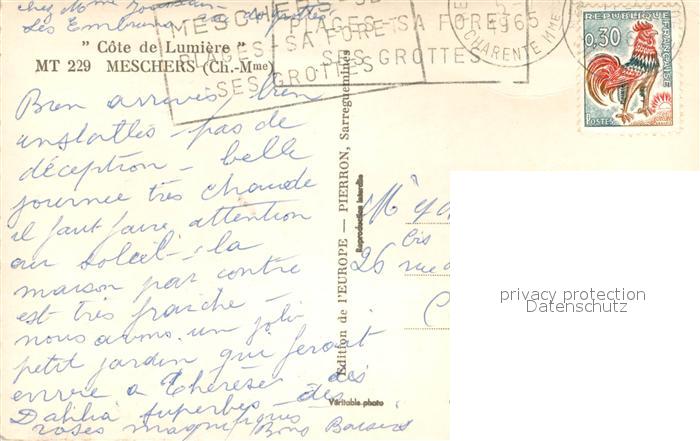 chez Mme
Les
MESCHERS
PLAGES - SA FORET
SES GROTTES
PLAGES - SA FORET
SES GROTTES
1965
CHARENTE Mme
0,30
REPUBLIQUE FRANÇAISE
POSTES
" Côte de Lumière "
MT 229 MESCHERS (Ch.-Mme)
Bien arrivés, bien
installés - pas de
déception - belle
journée très chaude
il faut faire attention
au soleil - la
maison par contre
est très fraiche -
nous avons un joli
petit jardin qui ferait
envie a Thérèse des
Dahlia superbes - des
roses magnifiques Bons Baisers
Edition de l'EUROPE — PIERRON, Sarreguemines
Reproduction interdite
Véritable photo
bis
26 rue
privacy protection
Datenschutz